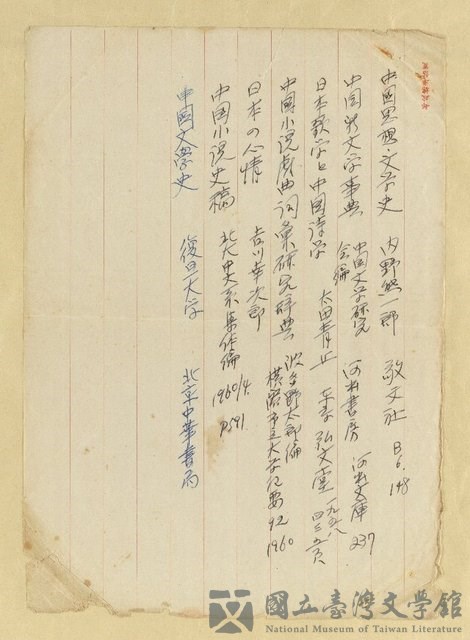 中國思想・文学史 内野熊一郎 敬文社 B6. 148
中国新文学事典 中国文学研究会編 河出書房 河出文庫 237
日本歌学と中国詩学 太田青丘 東京 弘文堂 一九五八 四三五頁
中國小説戲曲詞彙研究辞典 波多野太郎編 横浜市立大学紀要 92 1960
日本の心情 吉川幸次郎
中国小说史稿 北大中文系集体編 1960/4. P.591.
中國文學史 復旦大学 北京中華書局
國立臺灣文學館
National Museum of Taiwan Literature